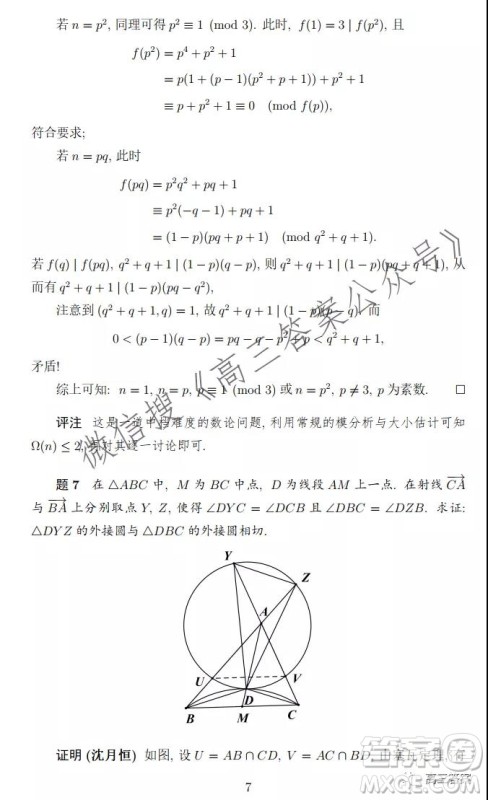 若 n = p², 同理可得 p² ≡ 1 (mod 3). 此时, f(1) = 3 | f(p²), 且
f(p²) = p⁴ + p² + 1
= p(1 + (p − 1)(p² + p + 1)) + p² + 1
≡ p + p² + 1 ≡ 0 (mod f(p)),
符合要求;
若 n = pq, 此时
f(pq) = p²q² + pq + 1
≡ p²(−q − 1) + pq + 1
= (1 − p)(pq + p + 1) (mod q² + q + 1).
若 f(q) | f(pq), q² + q + 1 | (1 − p)(q − p), 则 q² + q + 1 | (1 − p)(pq + p + 1), 从
而有 q² + q + 1 | (1 − p)(pq − q²),
注意到 (q² + q + 1, q) = 1, 故 q² + q + 1 | (1 − p)(p − q), 而
0 < (p − 1)(q − p) = pq − q − p² + p < q² + q + 1,
矛盾!
综上可知: n = 1, n = p, p ≡ 1 (mod 3) 或 n = p², p ≠ 3, p 为素数. □
评注 这是一道中档难度的数论问题, 利用常规的模分析与大小估计可知
Ω(n) ≤ 2, 再对其逐一讨论即可.
题 7 在 △ABC 中, M 为 BC 中点, D 为线段 AM 上一点. 在射线 CA
与 BA 上分别取点 Y, Z, 使得 ∠DYC = ∠DCB 且 ∠DBC = ∠DZB. 求证:
△DYZ 的外接圆与 △DBC 的外接圆相切.
Y
Z
A
U
V
D
B
M
C
证明 (沈月恒) 如图, 设 U = AB ∩ CD, V = AC ∩ BD, 由塞瓦定理, 有
7
微信搜《高三答案公众号》
答案圈
高三答案